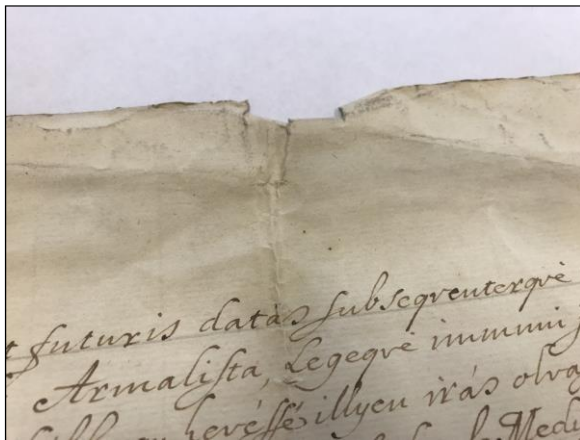 t futuris datas subseqventerqvè
Armalista, Legeqvè immunis
illyen irás olva